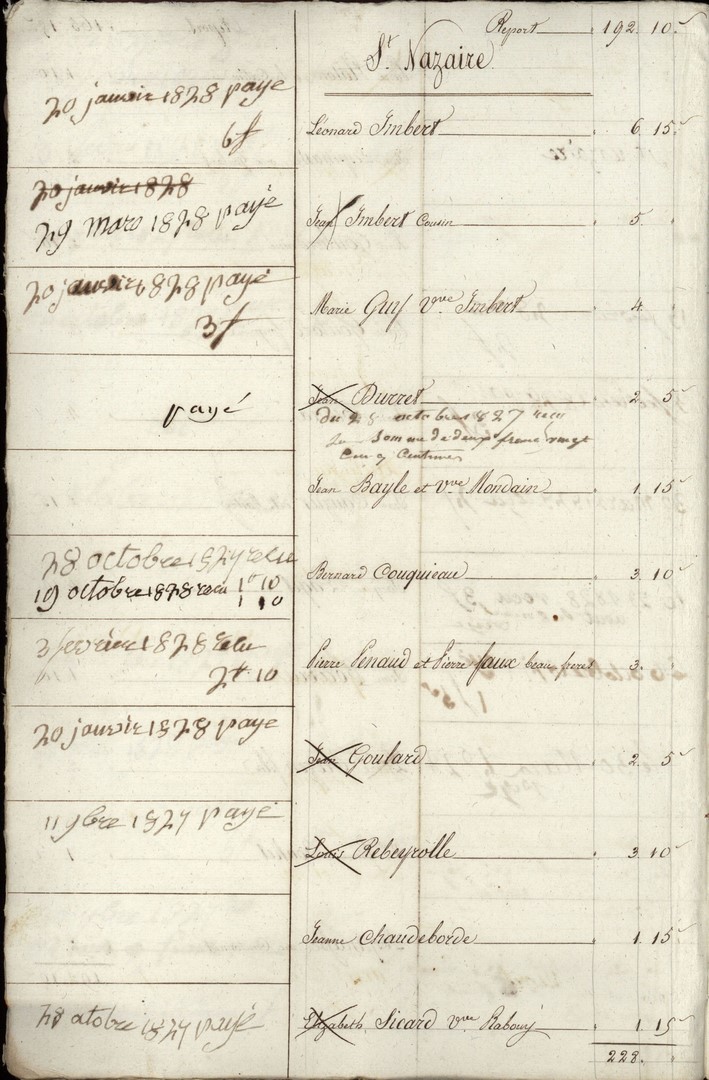 Report 192. 10.
St Nazaire
20 janvier 1828 payé
6f
Léonard Imbert 6. 15
20 janvier 1828
29 mars 1828 payé
Jean Imbert Cousin 5.
20 janvier 1828 payé
3f
Marie Guy vve Imbert 4.
payé
Jean Durret 2. 5
du 28 octobre 1827 reçu
la somme de deux franc vingt
cinq centimes
Jean Bayle et vve Mondain 1. 15
28 octobre 1827 recu 1f 10
19 octobre 1828 recu 1 10
Bernard Couquieau 3. 10
3 fevrier 1828 recu
2f 10
Pierre Penaud et Pierre faux beau freres 3.
20 janvier 1828 payé
Jean Goulard 2. 5
11 9bre 1827 payé
Louis Rebeyrolle 3. 10
Jeanne Chaudeborde 1. 15
28 atobre 1827 payé
Elizabeth Sicard vve Rabouy 1. 15
228.